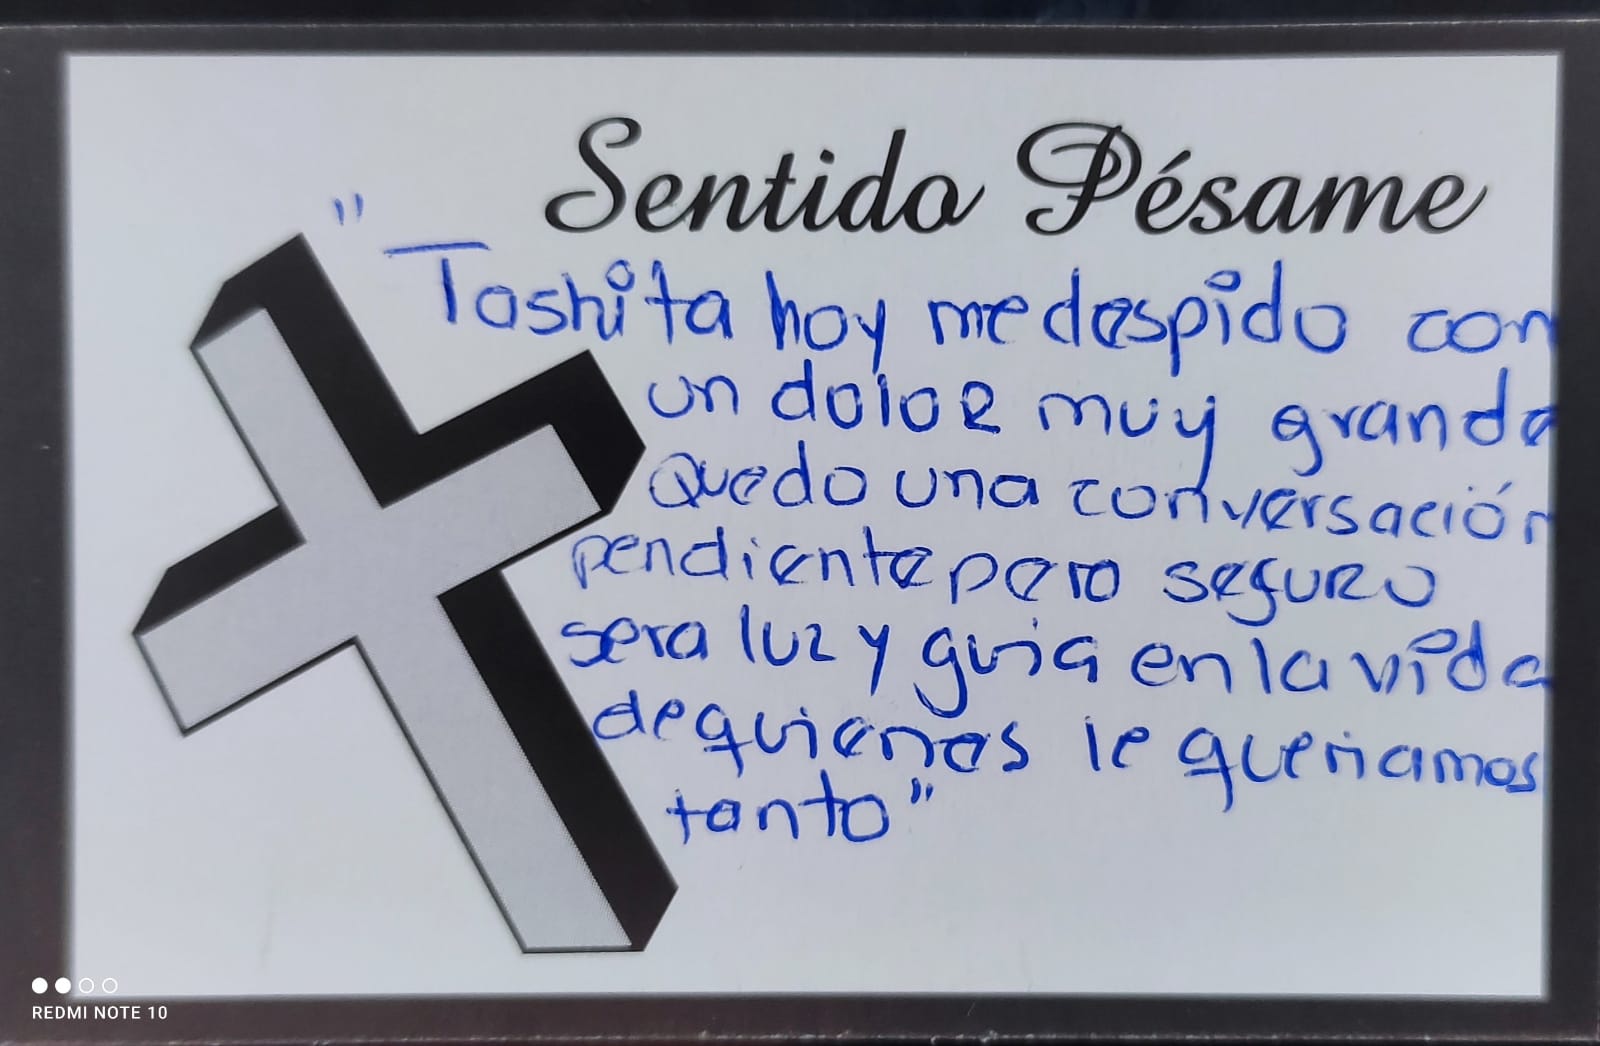 Sentido Pésame
"Toshita hoy me despido con
un dolor muy grande
Quedo una conversación
pendiente pero seguro
sera luz y guia en la vida
de quienes le queriamos
tanto"
REDMI NOTE 10